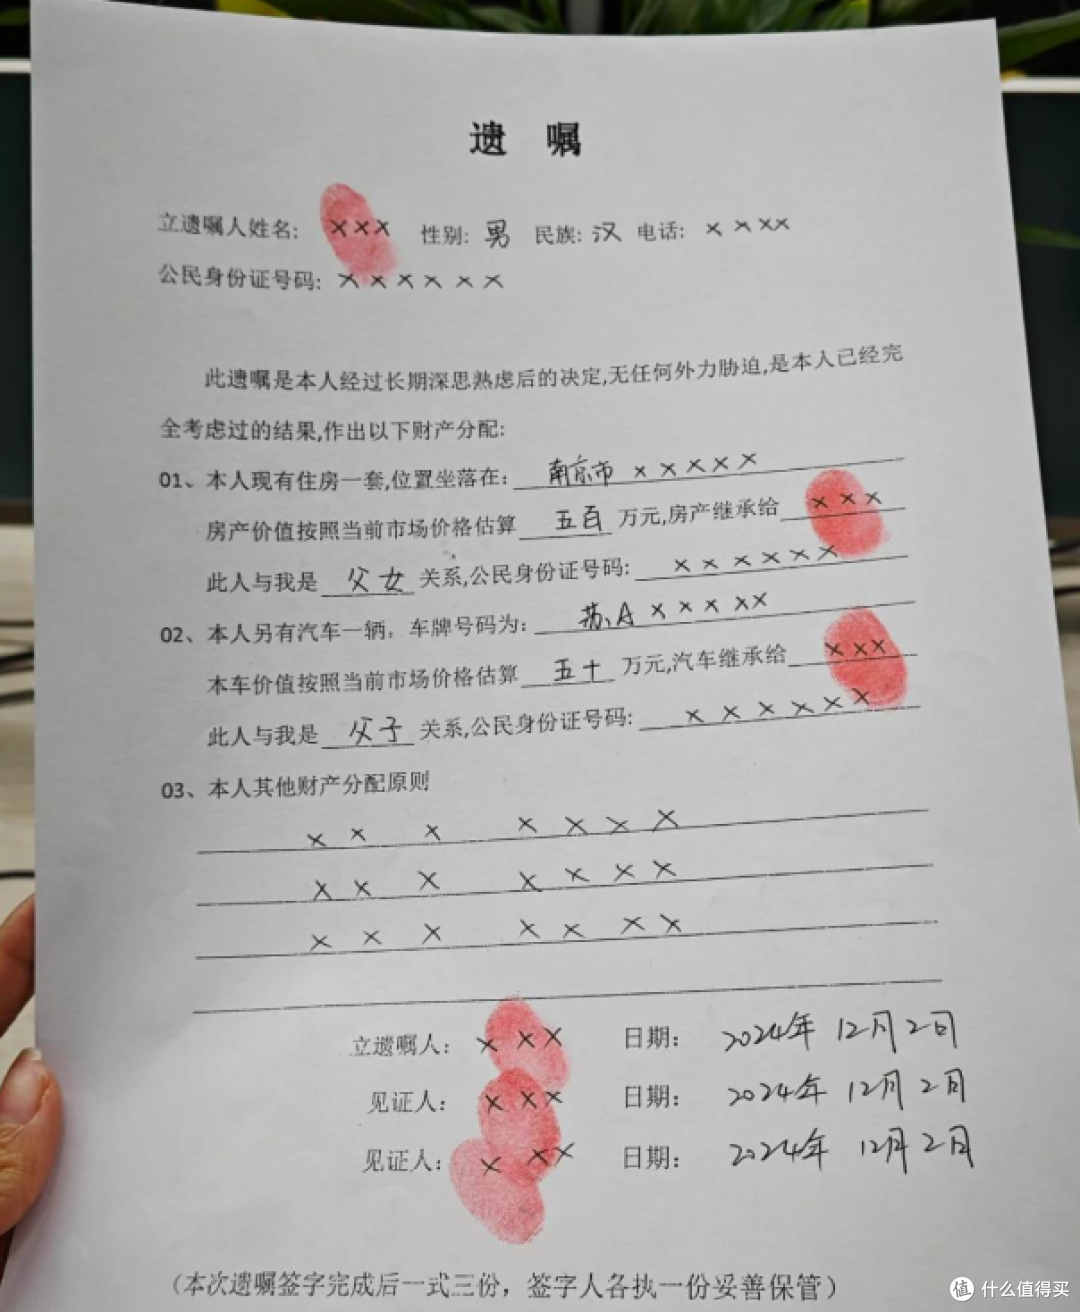 遗 嘱
立遗嘱人姓名: ××× 性别: 男 民族: 汉 电话: ××××
公民身份证号码: ××××××
此遗嘱是本人经过长期深思熟虑后的决定,无任何外力胁迫,是本人已经完
全考虑过的结果,作出以下财产分配:
01、本人现有住房一套,位置坐落在: 南京市 ×××××
房产价值按照当前市场价格估算 五百 万元,房产继承给 ×××
此人与我是 父女 关系,公民身份证号码: ××××××
02、本人另有汽车一辆，车牌号码为: 苏A ×××××
本车价值按照当前市场价格估算 五十 万元,汽车继承给 ×××
此人与我是 父子 关系,公民身份证号码: ××××××
03、本人其他财产分配原则
×× × ××××
×× × ××××
×× × ××××
立遗嘱人: ××× 日期: 2024年 12月2日
见证人: ××× 日期: 2024年 12月2日
见证人: ××× 日期: 2024年 12月2日
（本次遗嘱签字完成后一式三份，签字人各执一份妥善保管）
值 什么值得买